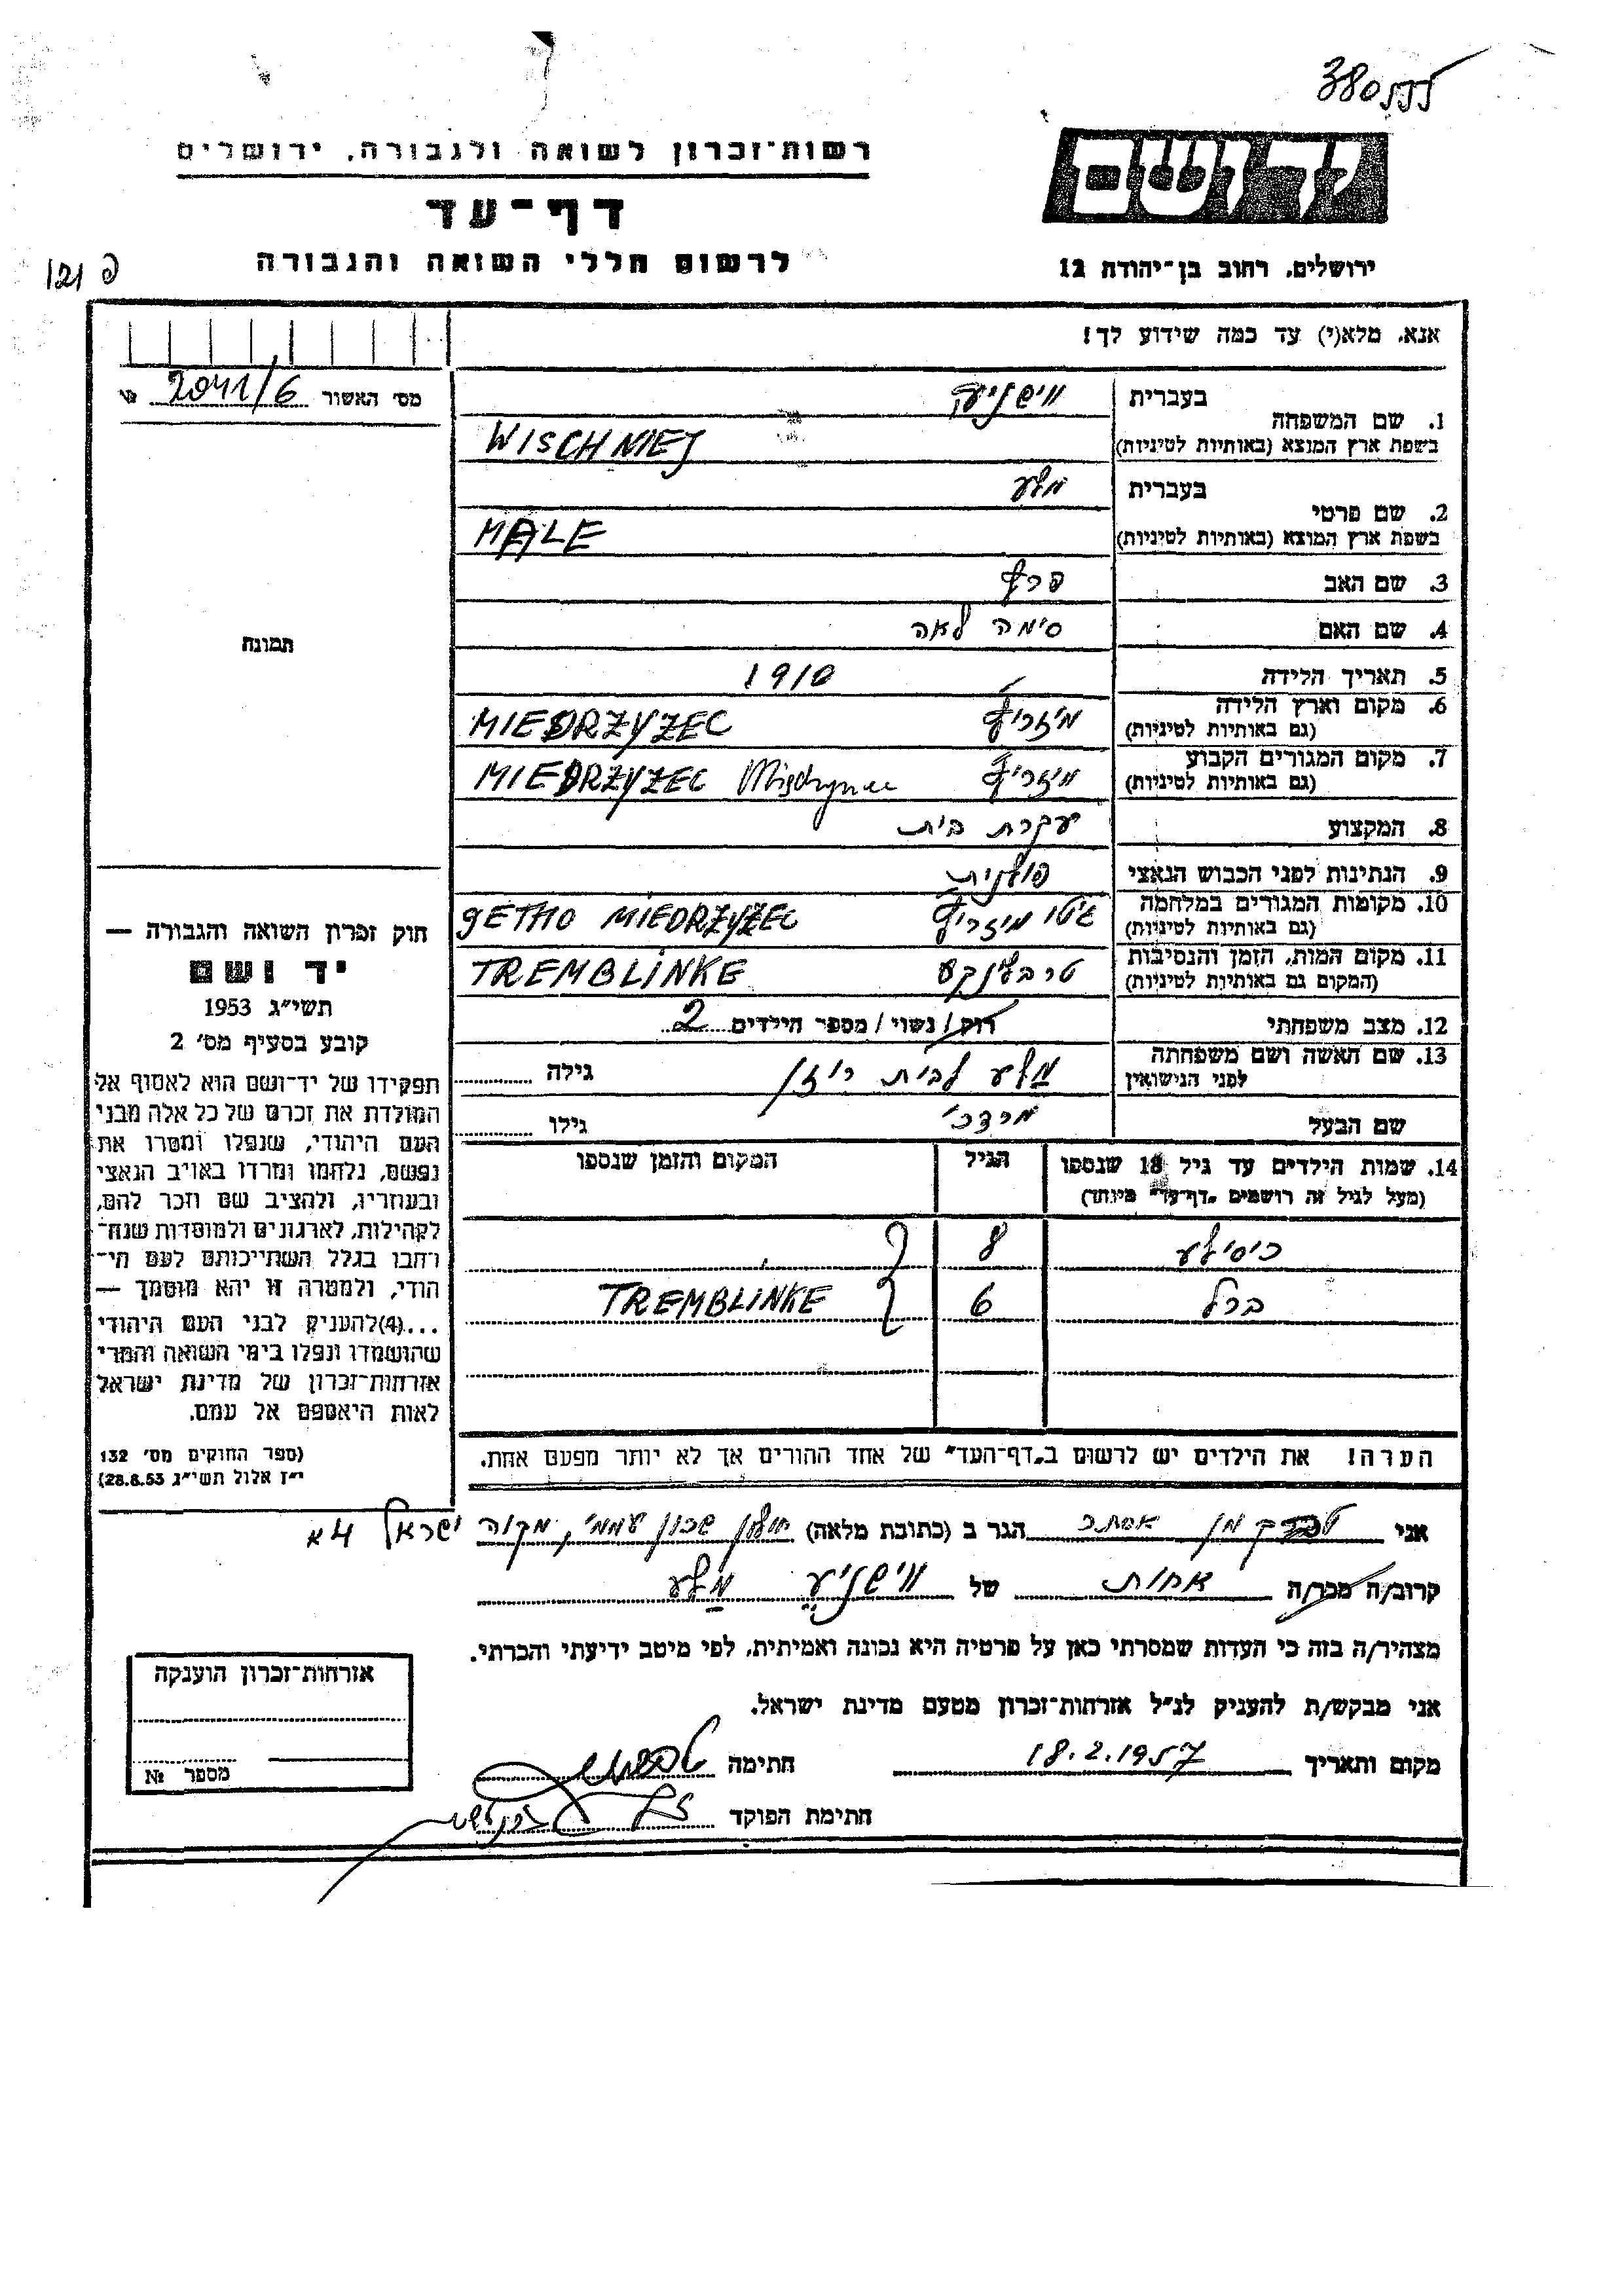 380555
רשות-זכרון לשואה ולגבורה, ירושלים
יד ושם
דף-עד
לרשום חללי השואה והגבורה
ירושלים, רחוב בן-יהודה 12
פ 121
אנא, מלא(י) עד כמה שידוע לך!
מס' האשור 2041/6 №
תמונה
1. שם המשפחה
בעברית
בשפת ארץ המוצא (באותיות לטיניות) WISCHNIEJ
2. שם פרטי
בעברית מלע
בשפת ארץ המוצא (באותיות לטיניות) MALE
3. שם האב
4. שם האם סימה לאה
5. תאריך הלידה 1910
6. מקום וארץ הלידה
(גם באותיות לטיניות) מיזריץ MIEDRZYZEC
7. מקום המגורים הקבוע
(גם באותיות לטיניות) מיזריץ MIEDRZYZEC
8. המקצוע עקרת בית
9. הנתינות לפני הכבוש הנאצי פולנית
10. מקומות המגורים במלחמה
(גם באותיות לטיניות) גיטו מיזריץ GETHO MIEDRZYZEC
11. מקום המות, הזמן והנסיבות
(המקום גם באותיות לטיניות) טרבלינקע TREMBLINKE
12. מצב משפחתי רוק/ נשוי/ מספר הילדים 2
13. שם האשה ושם משפחתה
לפני הנישואין מלע לבית רוזן גילה
שם הבעל מרדכי גילו
14. שמות הילדים עד גיל 18 שנספו
(מעל לגיל זה רושמים "דף-עד" מיוחד)
הגיל
המקום והזמן שנספו
8
ברל 6 TREMBLINKE
הערה! את הילדים יש לרשום ב"דף-העד" של אחד ההורים אך לא יותר מפעם אחת.
חוק זכרון השואה והגבורה —
יד ושם
תשי"ג 1953
קובע בסעיף מס' 2
תפקידו של יד-ושם הוא לאסוף אל
המולדת את זכרם של כל אלה מבני
העם היהודי, שנפלו ומסרו את
נפשם, נלחמו ומרדו באויב הנאצי
ובעוזריו, ולהציב שם וזכר להם,
לקהילות, לארגונים ולמוסדות שנח-
רבו בגלל השתייכותם לעם הי-
הודי, ולמטרה זו יהא מוסמך —
...(4)להעניק לבני העם היהודי
שהושמדו ונפלו בימי השואה והמרי
אזרחות-זכרון של מדינת ישראל
לאות היאספם אל עמם.
(ספר החוקים מס' 132
י"ז אלול תשי"ג 28.8.53)
אני אסתר הגר ב (כתובת מלאה) חולון שכון עממי, מקוה ישראל 4א
קרוב/ה מכר/ה אחות של מלע
מצהיר/ה בזה כי העדות שמסרתי כאן על פרטיה היא נכונה ואמיתית, לפי מיטב ידיעתי והכרתי.
אני מבקש/ת להעניק לנ"ל אזרחות-זכרון מטעם מדינת ישראל.
מקום ותאריך 18.2.1957 חתימה
חתימת הפוקד
אזרחות-זכרון הוענקה
מספר №